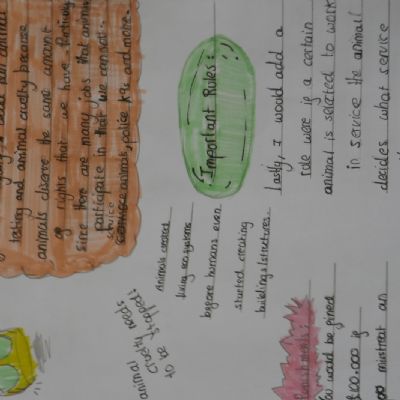 taking and animal cruelty become
animals disserve the same amount
of rights that we have. Partially
since there are many jobs that animals
participate in that we consist.
service
animals, police K9s and more.
Important Rules:
Lastly, I would add a
rule were if a certain
animal is selected to work
in service the animal
decides what service
Animals created
living ecosystems
before humans even
started creating
buildings/structures.
animal
cruelty needs
to be stopped!
You would be fined
$100.000 if
mistreat an